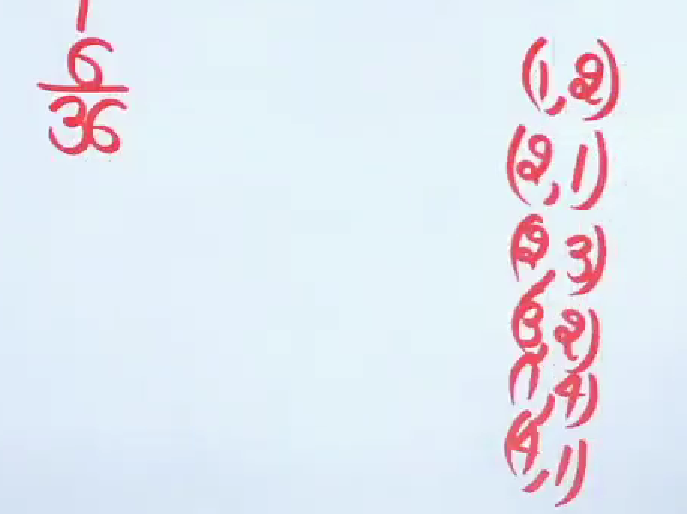 6
36
(1,2)
(2,1)
(2,3)
(3,2)
(1,4)
(4,1)